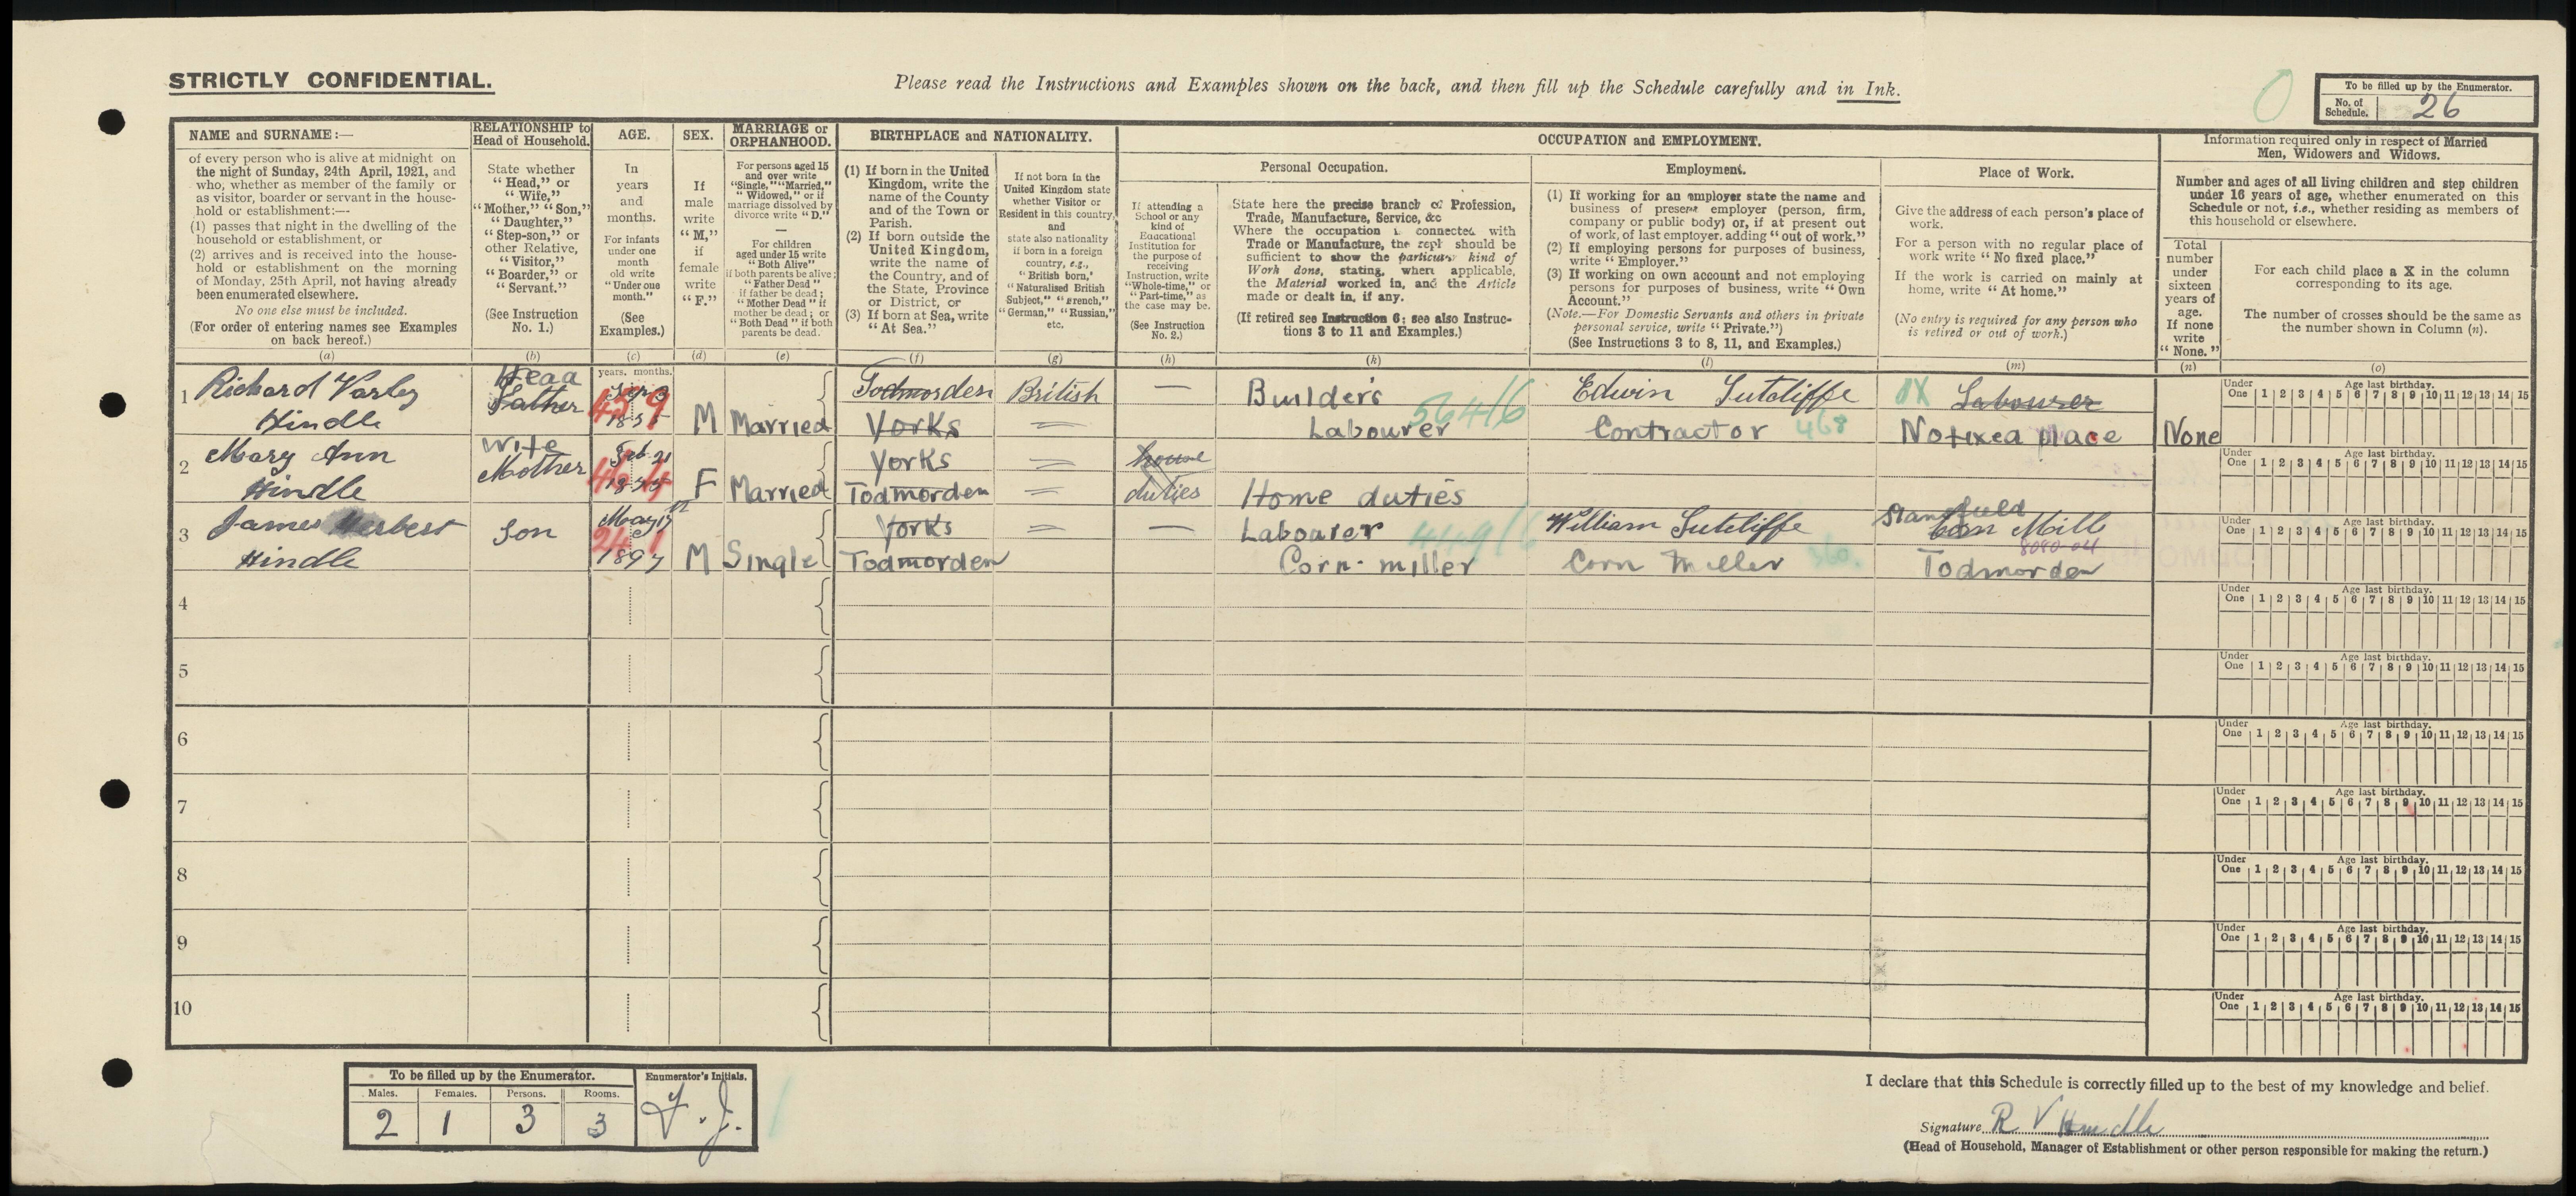 STRICTLY CONFIDENTIAL.
Please read the Instructions and Examples shown on the back, and then fill up the Schedule carefully and in Ink.
To be filled up by the Enumerator.
No. of Schedule. 26
NAME and SURNAME:—
of every person who is alive at midnight on
the night of Sunday, 24th April, 1921, and
who, whether as member of the family or
as visitor, boarder or servant in the house-
hold or establishment:—
(1) passes that night in the dwelling of the
household or establishment, or
(2) arrives and is received into the house-
hold or establishment on the morning
of Monday, 25th April, not having already
been enumerated elsewhere.
No one else must be included.
(For order of entering names see Examples
on back hereof.)
(a)
RELATIONSHIP to
Head of Household.
State whether
"Head," or
"Wife,"
"Mother," "Son,"
"Daughter,"
"Step-son," or
other Relative,
"Visitor,"
"Boarder," or
"Servant."
(See Instruction
No. 1.)
(b)
AGE.
In
years
and
months.
For infants
under one
month
old write
"Under one
month."
(See
Examples.)
(c)
years. months.
SEX.
If
male
write
"M,"
if
female
write
"F."
(d)
MARRIAGE or
ORPHANHOOD.
For persons aged 15
and over write
"Single," "Married,"
"Widowed," or if
marriage dissolved by
divorce write "D."
—
For children
aged under 15 write
"Both Alive"
if both parents be alive;
"Father Dead"
if father be dead;
"Mother Dead" if
mother be dead; or
"Both Dead" if both
parents be dead.
(e)
BIRTHPLACE and NATIONALITY.
(1) If born in the United
Kingdom, write the
name of the County
and of the Town or
Parish.
(2) If born outside the
United Kingdom,
write the name of
the Country, and of
the State, Province
or District, or
(3) If born at Sea, write
"At Sea."
(f)
If not born in the
United Kingdom state
whether Visitor or
Resident in this country,
and
state also nationality
if born in a foreign
country, e.g.,
"British born,"
"Naturalised British
Subject," "French,"
"German," "Russian,"
etc.
(g)
OCCUPATION and EMPLOYMENT.
If attending a
School or any
kind of
Educational
Institution for
the purpose of
receiving
Instruction, write
"Whole-time," or
"Part-time," as
the case may be.
(See Instruction
No. 2.)
(h)
Personal Occupation.
State here the precise branch of Profession,
Trade, Manufacture, Service, &c
Where the occupation is connected with
Trade or Manufacture, the reply should be
sufficient to show the particular kind of
Work done, stating, where applicable,
the Material worked in, and the Article
made or dealt in, if any.
(If retired see Instruction 6; see also Instruc-
tions 3 to 11 and Examples.)
(k)
Employment.
(1) If working for an employer state the name and
business of present employer (person, firm,
company or public body) or, if at present out
of work, of last employer, adding "out of work."
(2) If employing persons for purposes of business,
write "Employer."
(3) If working on own account and not employing
persons for purposes of business, write "Own
Account."
(Note.—For Domestic Servants and others in private
personal service, write "Private.")
(See Instructions 3 to 8, 11, and Examples.)
(l)
Place of Work.
Give the address of each person's place of
work.
For a person with no regular place of
work write "No fixed place."
If the work is carried on mainly at
home, write "At home."
(No entry is required for any person who
is retired or out of work.)
(m)
Information required only in respect of Married
Men, Widowers and Widows.
Number and ages of all living children and step children
under 16 years of age, whether enumerated on this
Schedule or not, i.e., whether residing as members of
this household or elsewhere.
Total
number
under
sixteen
years of
age.
If none
write
"None."
(n)
For each child place a X in the column
corresponding to its age.
The number of crosses should be the same as
the number shown in Column (n).
(o)
1 Richard Varley
Hindle
Head
Father
45 9
M
Married
Todmorden
Yorks
British
—
Builder's
Labourer
564/6
Edwin Sutcliffe
Contractor 468
Labourer
No fixed place
None
Under One Age last birthday. 1 2 3 4 5 6 7 8 9 10 11 12 13 14 15
2 Mary Ann
Hindle
Wife
Mother
Feb 21
F
Married
Yorks
Todmorden
house
duties
Home duties
Under One Age last birthday. 1 2 3 4 5 6 7 8 9 10 11 12 13 14 15
3 James Herbert
Hindle
Son
May 17
24 1
1897
M
Single
Yorks
Todmorden
—
Labourer
Corn-miller
William Sutcliffe
Corn Miller 360.
Stansfield
Corn Mill
Todmorden
Under One Age last birthday. 1 2 3 4 5 6 7 8 9 10 11 12 13 14 15
4
Under One Age last birthday. 1 2 3 4 5 6 7 8 9 10 11 12 13 14 15
5
Under One Age last birthday. 1 2 3 4 5 6 7 8 9 10 11 12 13 14 15
6
Under One Age last birthday. 1 2 3 4 5 6 7 8 9 10 11 12 13 14 15
7
Under One Age last birthday. 1 2 3 4 5 6 7 8 9 10 11 12 13 14 15
8
Under One Age last birthday. 1 2 3 4 5 6 7 8 9 10 11 12 13 14 15
9
Under One Age last birthday. 1 2 3 4 5 6 7 8 9 10 11 12 13 14 15
10
Under One Age last birthday. 1 2 3 4 5 6 7 8 9 10 11 12 13 14 15
To be filled up by the Enumerator.
Males. Females. Persons. Rooms.
2 1 3 3
Enumerator's Initials.
I declare that this Schedule is correctly filled up to the best of my knowledge and belief.
Signature R V Hindle
(Head of Household, Manager of Establishment or other person responsible for making the return.)